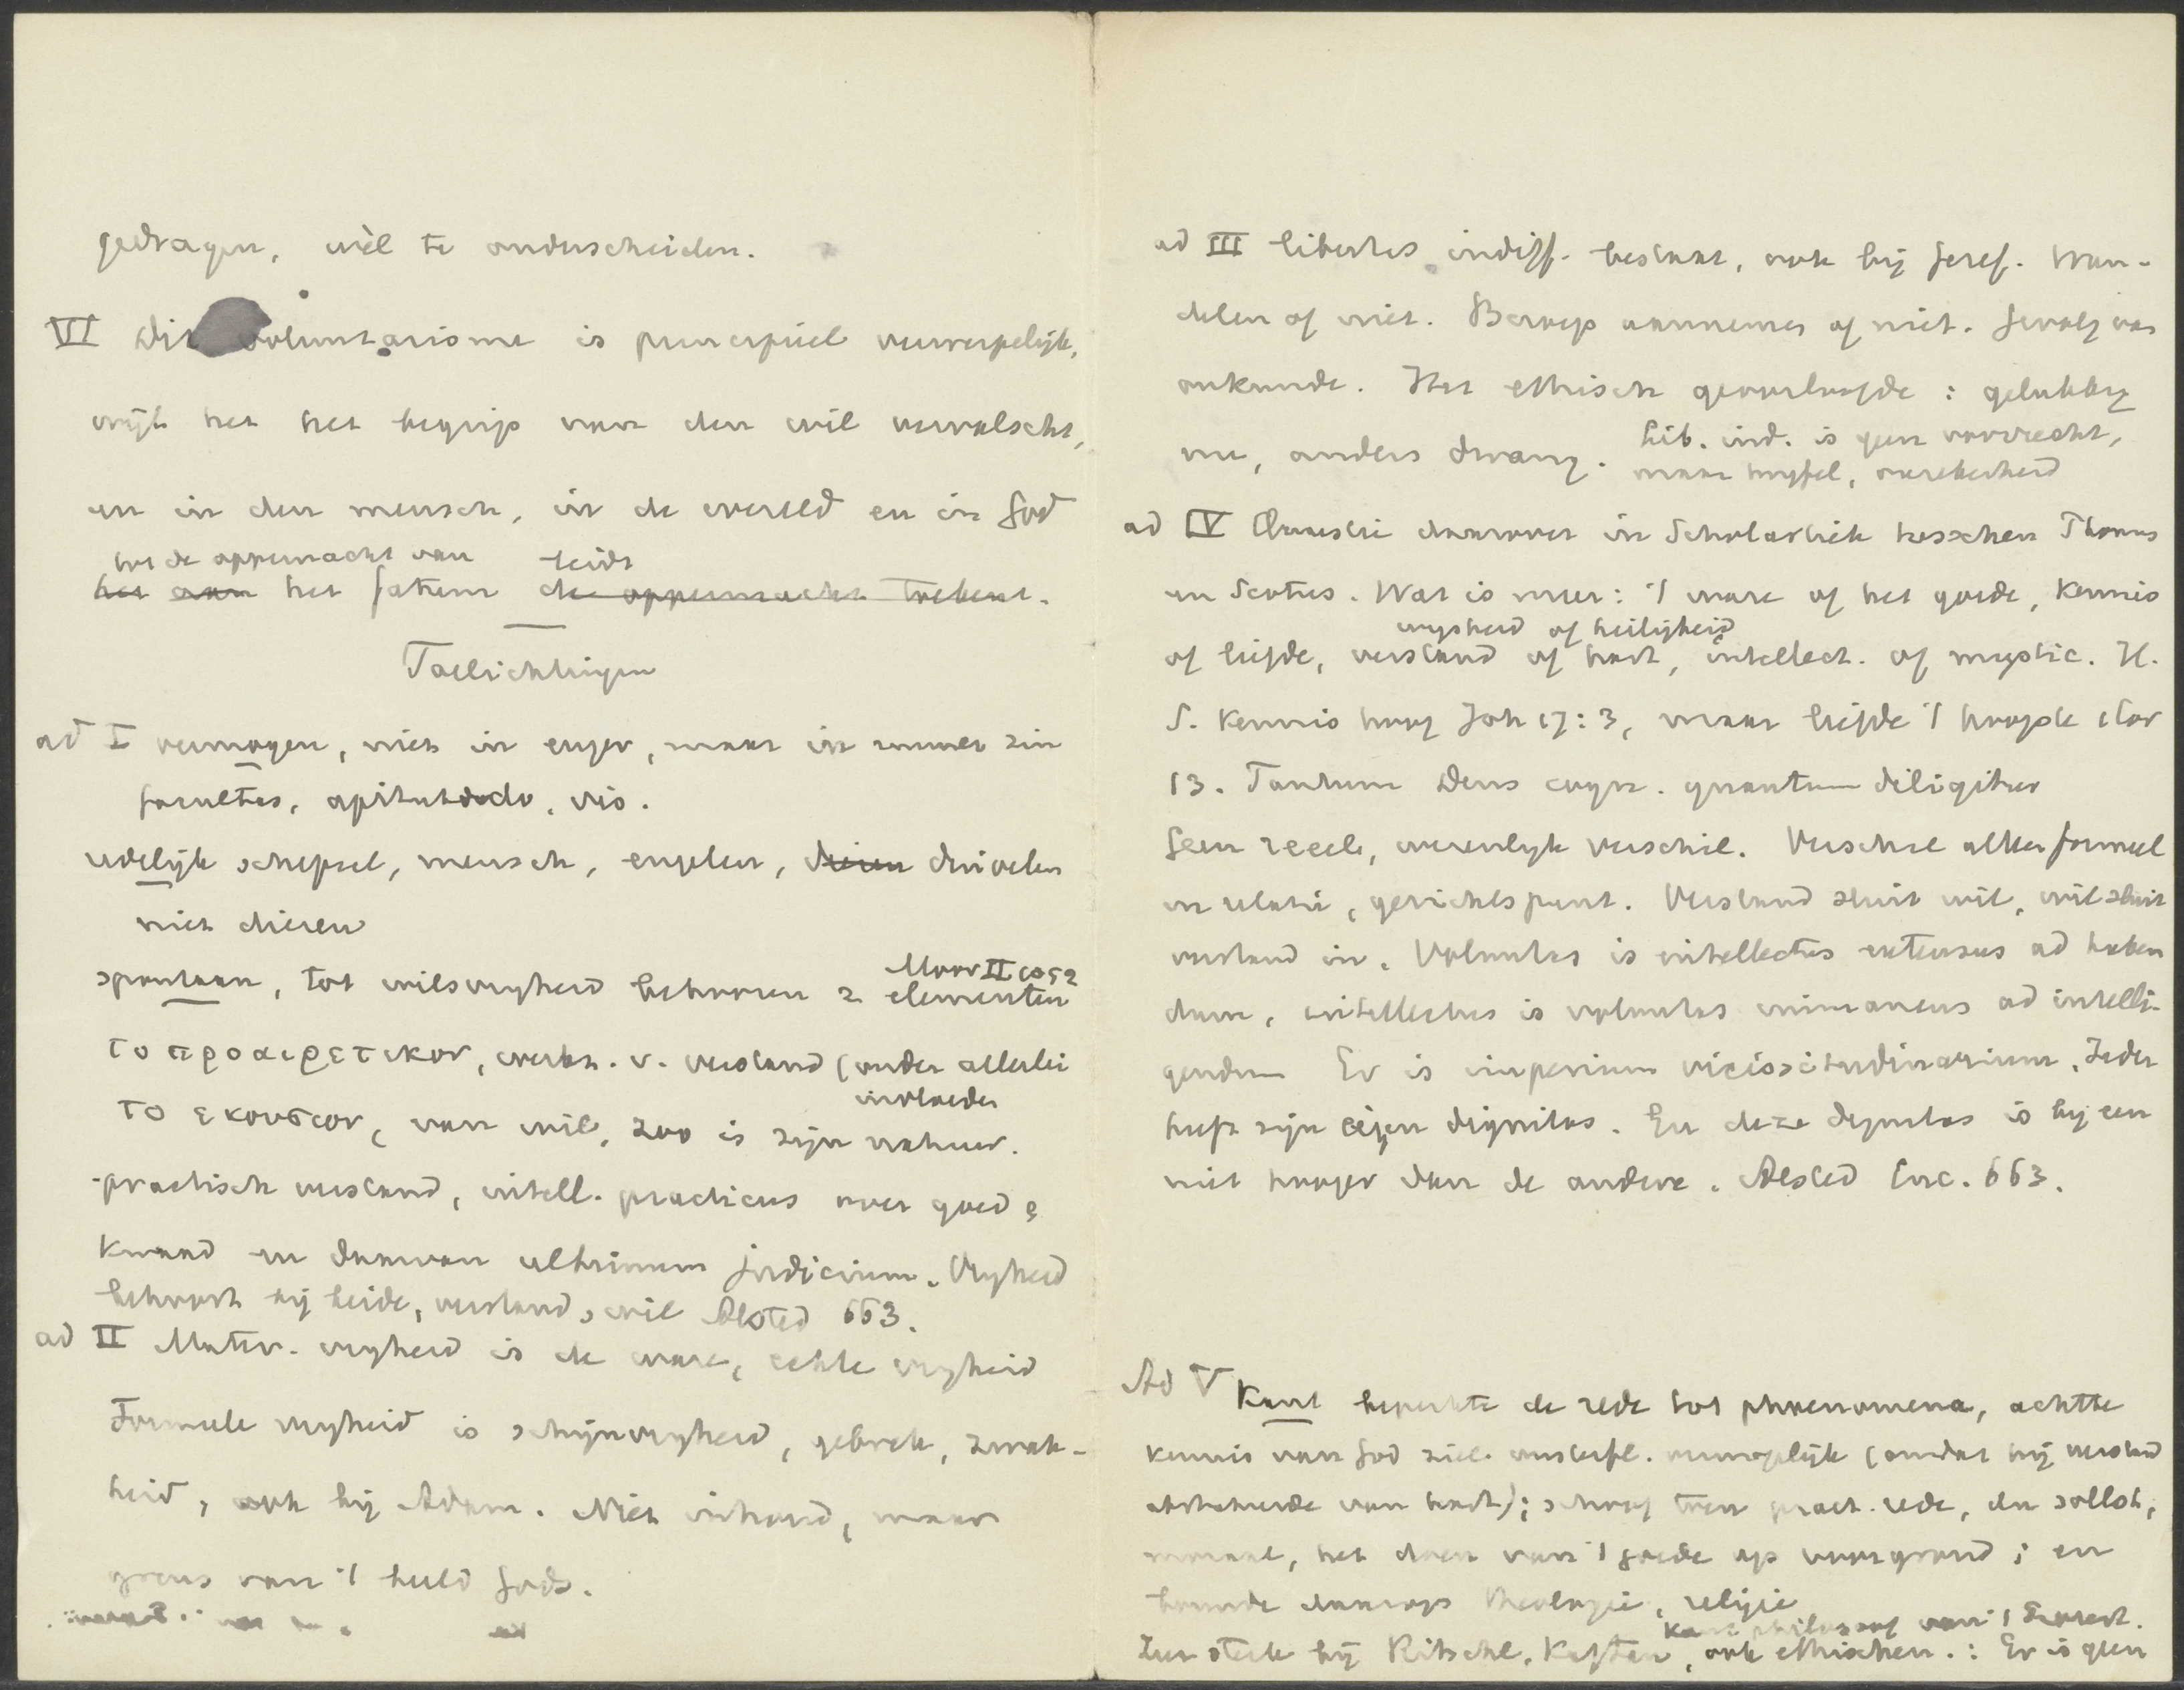 gedragen, wèl te onderscheiden.
VI Dit voluntarisme is principieel verwerpelijk,
wijl het het begrip van den wil vervalscht,
en in den mensch, in de wereld en in God
tot de oppermacht van leidt
het aan het fatum de oppermacht toekent.
Toelichtingen
ad I vermogen, niet in enger, maar in ruimer zin
facultas, aptitudo, vis.
redelijk schepsel, mensch, engelen, dieren duivelen
niet dieren
Moor II 1052
spontaan, tot wilsvrijheid behooren 2 elementen
το προαιρετικον, werkz. v. verstand (onder allerlei
invloeden
το εκουσιον, van wil, zoo is zijn natuur.
practisch verstand, intell. practicus over goed &
kwaad en daarvan ultimum judicium. Vrijheid
behoort bij beide, verstand, wil Alsted 663.
ad II Mater. vrijheid is de ware, echte vrijheid
Formeele vrijheid is schijnvrijheid, gebrek, zwak-
heid, ook bij Adam. Niet inhoud, maar
grens van 't beeld Gods.
ad III libertas indiff. bestaat, ook bij Geref. Wan-
delen of niet. Beroep aannemen of niet. Gevolg van
onkunde. Het ethisch geoorloofde: gelukkig
lib. ind. is geen voorrecht,
nu, anders dwang. maar twijfel, onzekerheid
ad IV Quaestie daarover in Scholastiek tusschen Thomas
en Scotus. Wat is meer: 't ware of het goede, kennis
wijsheid of heiligheid
of liefde, verstand of hart, intellect. of mystic. H.
S. kennis hoog Joh 17:3, maar liefde 't hoogste 1 Cor
13. Tantum Deus cogn. quantum diligitur
Geen reeele, wezenlijk verschil. Verschil alleen formeel
in relatie, gezichtspunt. Verstand sluit wil, wil sluit
verstand in. Voluntas is intellectus extensus ad haben
dum, intellectus is voluntas immanens ad intelli-
gendum Er is imperium vicissitudinarium. Ieder
heeft zijn eigen dignitas. En deze dignitas is bij een
niet hooger dan de andere. Alsted Enc. 663.
Ad V Kant beperkte de rede tot phaenomena, achtte
kennis van God ziel onsterfl. onmogelijk (omdat hij verstand
abstraheerde van hart); schoof toen pract. rede, du sollst,
moraal, het doen van 't goede op voorgrond; en
bouwde daarop theologie, religie
Kant philosoof van 't Protest.
Zoo sterk bij Ritschl, Kaftan, ook ethischen.: Er is geen